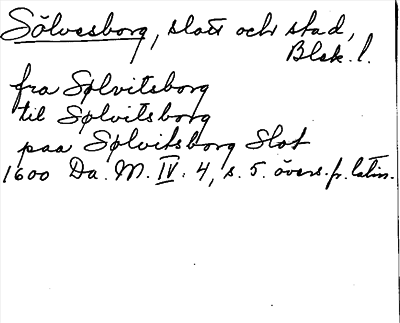 Sölvesborg, slott och stad,
Blek. l.
fra Sølvitsborg
til Sølvitsborg
paa Sølvitsborg Slot
1600 Da. M. IV. 4, s. 5. övers. fr. latin.